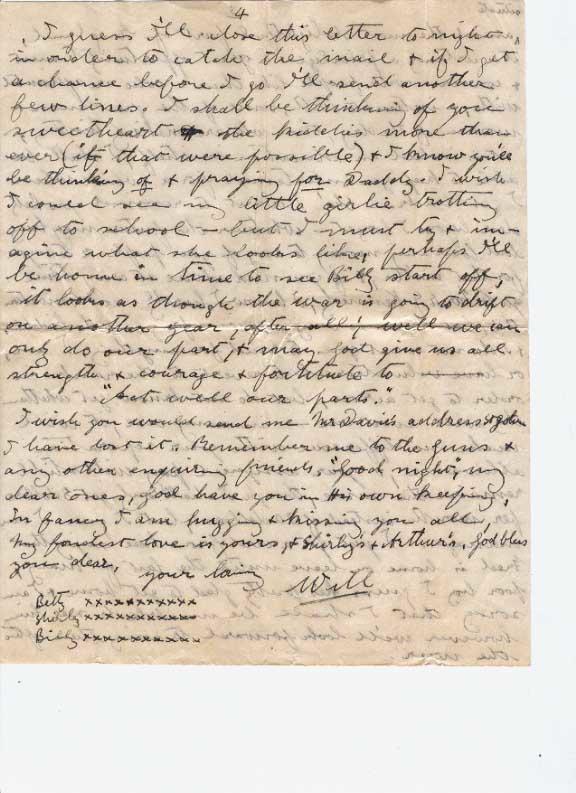 4
I guess I'll close this letter to-night,
in order to catch the mail & if I get
a chance before I go I'll send another
few lines. I shall be thinking of you
sweetheart & the kiddies more than
ever (if that were possible) & I know you'll
be thinking of & praying for Daddy. I wish
I could see my little girlie trotting
off to school - but I must try & im-
agine what she looks like, perhaps I'll
be home in time to see Billy start off,
it looks as though the war is going to drift
on another year, after all! well we can
only do our part, & may God give us all
strength & courage & fortitude to
"Act well our part."
I wish you would send me Mr Davis's address again
I have lost it. Remember me to the Guns &
any other enquiring friends. "Good night", my
dear ones, God have you in His own keeping,
In fancy I am hugging & kissing you all,
My fondest love is yours, & Shirly's & Arthur's. God bless
you dear,
your loving
Will
Betty xxxxxxxxxxx
Shirly xxxxxxxxxxx
Billy xxxxxxxxxxx